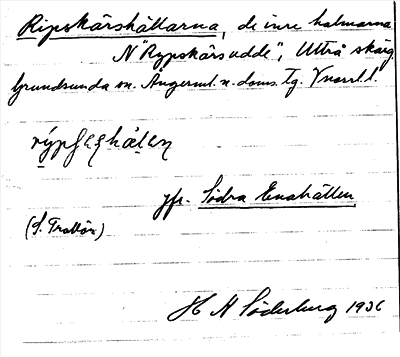 Ripskärshällarna, de inre holmarna
N "Rypskärsudde", Ultrå skärg.
Grundsunda sn. Ångerml. n. doms. tg. Vnorrl. l.
jfr. Södra Enahällen
(S. Trollön)
H A Söderberg 1936